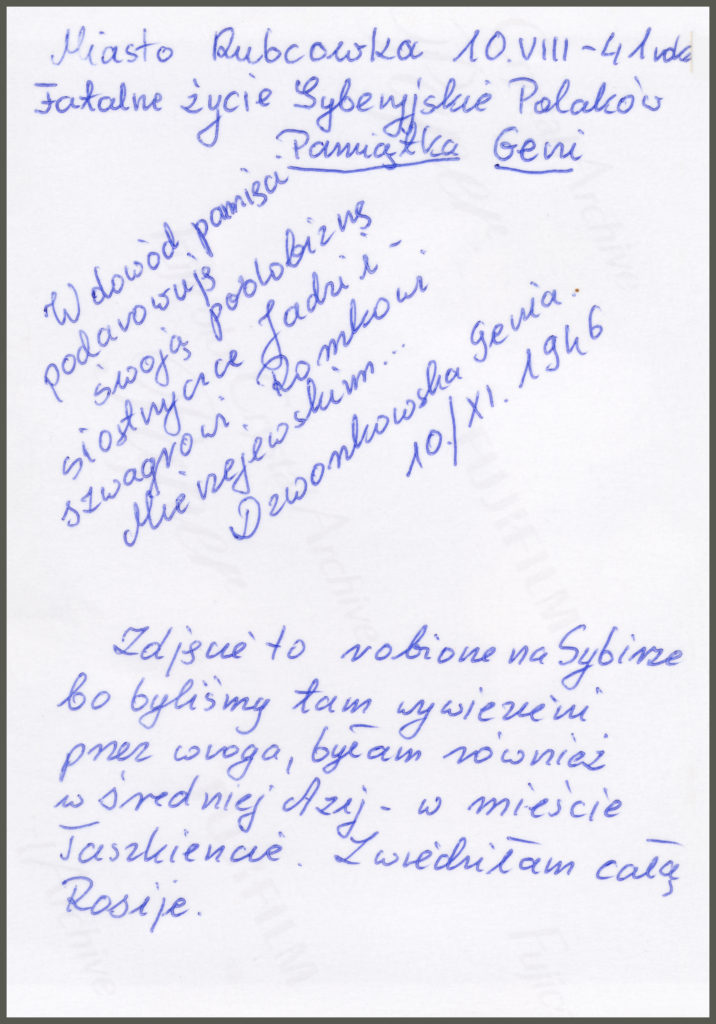 Miasto Rubcowka 10.VIII-41 roku
Fatalne życie Syberyjskie Polaków
Pamiątka Geni
W dowód pamięci
podarowuję
swoją podobiznę
siostrzyczce Jadzi i -
szwagrowi Romkowi
Mierzejewskim...
Dzwonkowska Genia.
10./XI. 1946
Zdjęcie to robione na Sybirze
bo byliśmy tam wywiezieni
przez wroga, byłam również
w średniej Azij - w mieście
Taszkiencie. Zwiedziłam całą
Rosije.
FUJIFILM
Archive